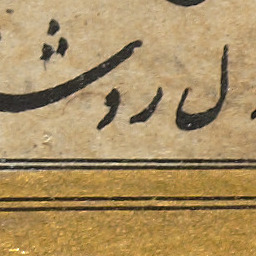 ل روش